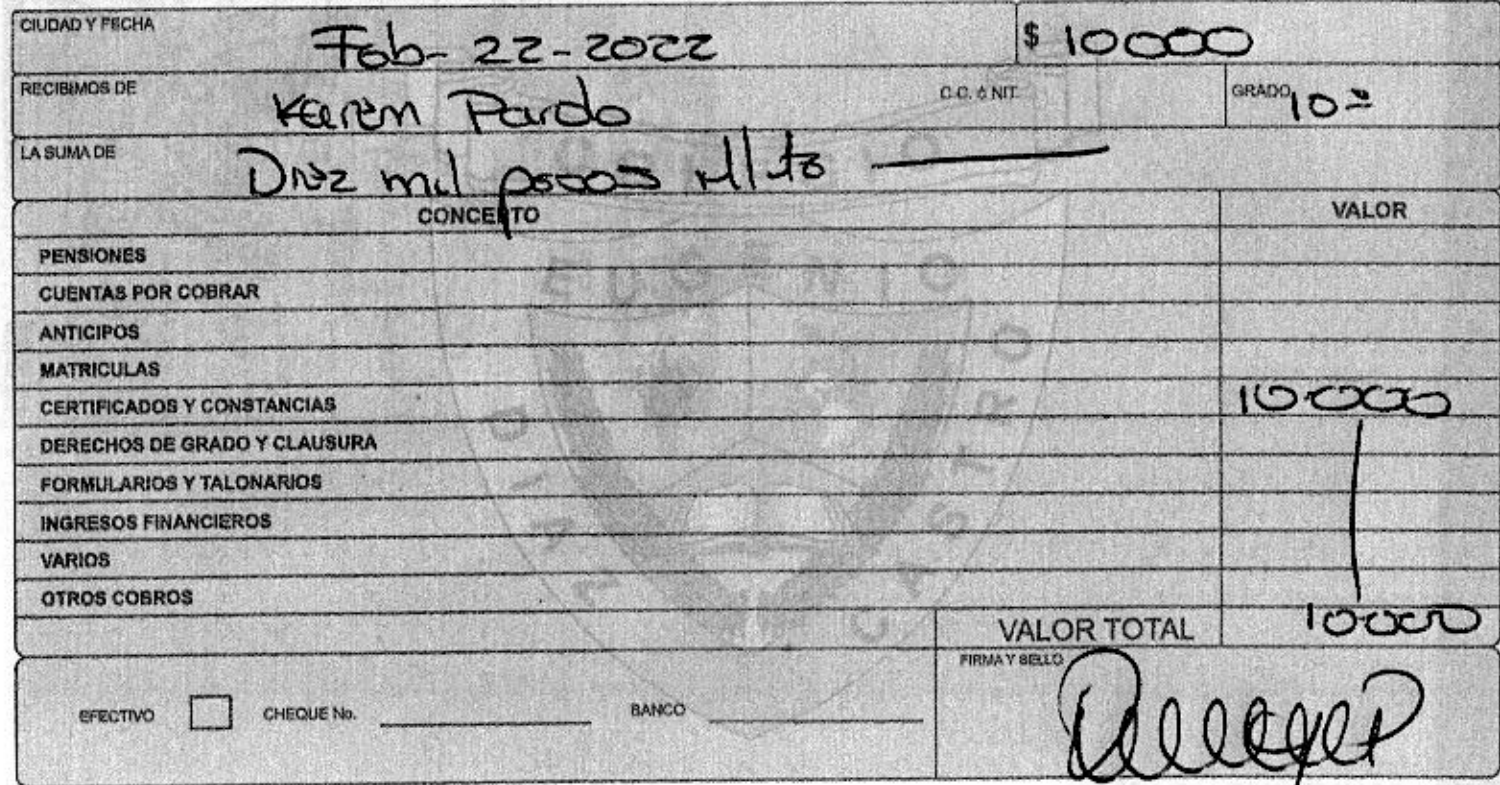 CIUDAD Y FECHA Feb- 22-2022 $ 10000
RECIBIMOS DE Karen Pardo C.C. ó NIT GRADO 10º
LA SUMA DE Diez mil pesos M/cte
CONCEPTO VALOR
PENSIONES
CUENTAS POR COBRAR
ANTICIPOS
MATRICULAS
CERTIFICADOS Y CONSTANCIAS 10000
DERECHOS DE GRADO Y CLAUSURA
FORMULARIOS Y TALONARIOS
INGRESOS FINANCIEROS
VARIOS
OTROS COBROS
VALOR TOTAL 10000
FIRMA Y SELLO
EFECTIVO CHEQUE No. BANCO
EUGENIO
DIAZ CASTRO